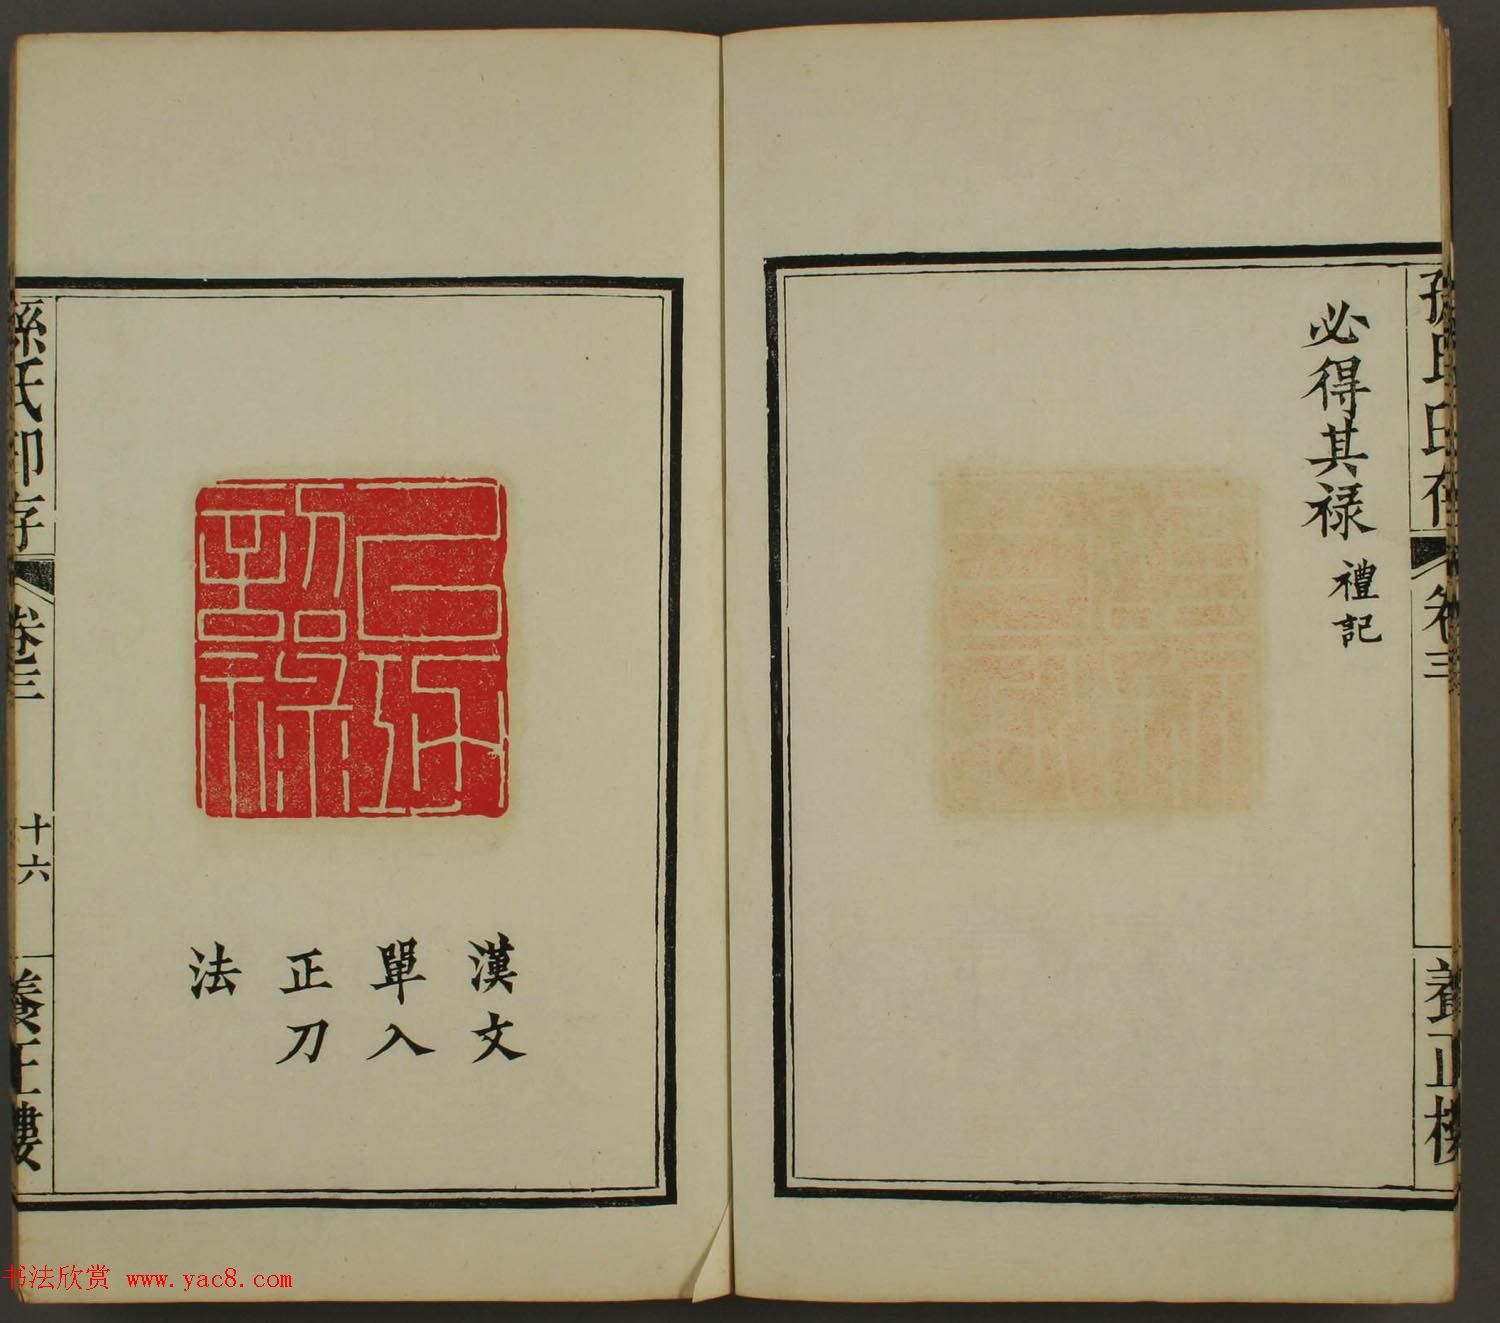 孫氏印存
卷三
養正樓
必得其禄 禮記
漢文
單入
正刀
法
孫氏印存
卷三
十六
養正樓
书法欣赏 www.yac8.com